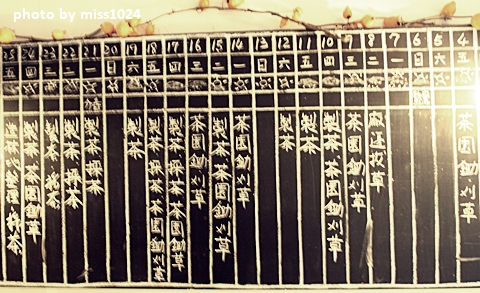 photo by miss1024
4 五 茶園鋤刈草
5 六
6 日
7 一
8 二 草
9 三 茶園鋤刈草
10 四 製茶.茶園鋤刈草
11 五 製茶
12 六 製茶
13 日
14 一 茶園鋤刈草
15 二 製茶.茶園鋤刈草
16 三 茶園鋤刈草
17 四 製茶 採茶 茶園鋤刈草
18 五 製茶 採茶 茶園鋤刈草
19 六 製茶
20 日
21 一 製茶 採茶
22 二 製茶 採茶
23 三 製茶 採茶
24 四 製茶 茶園鋤草
25 五 採茶